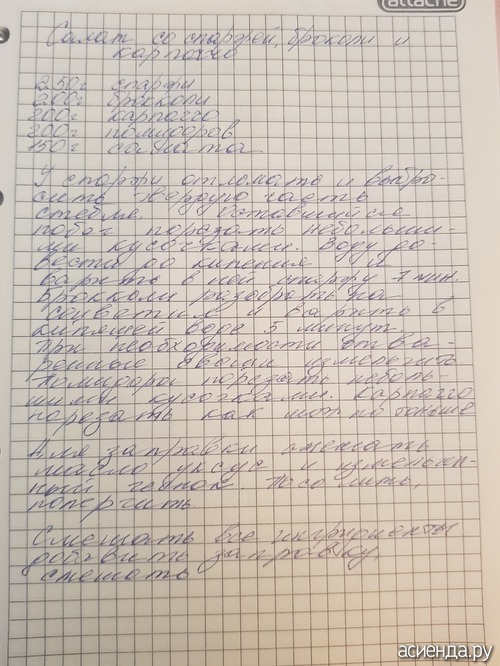 attache
Салат со спаржей, брокколи и
карпаччо
250г спаржи
200г брокколи
200г карпаччо
200г помидоров
150г салата
У спаржи отломать и выбро-
сить твердую часть
стебля. Оставшийся
побег порезать небольши-
ми кусочками. Воду до-
вести до кипения и
варить в ней спаржу 7 мин.
Брокколи разобрать на
соцветия и варить в
кипящей воде 5 минут.
При необходимости отва-
ренные овощи измельчить
Помидоры порезать неболь-
шими кусочками. Карпаччо
порезать как можно тоньше
Для заправки смешать
масло уксус и измельчен-
ный чеснок. Посолить,
поперчить
Смешать все ингридиенты
добавить заправку,
смешать
асиенда.ру